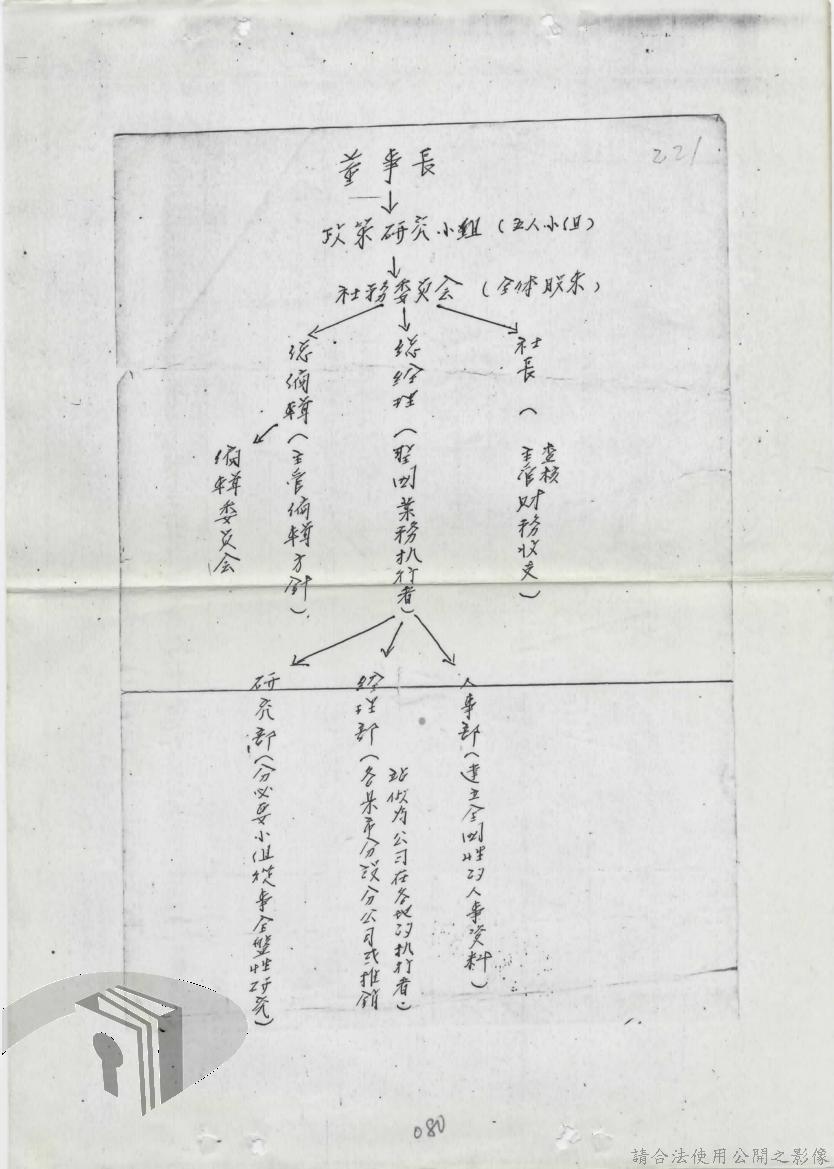 221
董事長
政策研究小組(五人小组)
社務委员会(全体股东)
社長(主管財務收支)
查核
総経理(整個業務执行者)
総编輯(主管编輯方針)
编輯委员会
人事部(建立全囯性的人事資料)
経理部(各縣市分設分公司或推銷
站做为公司在各地的执行者)
研究部(分必要小组從事全盤性研究)
080
請合法使用公開之影像